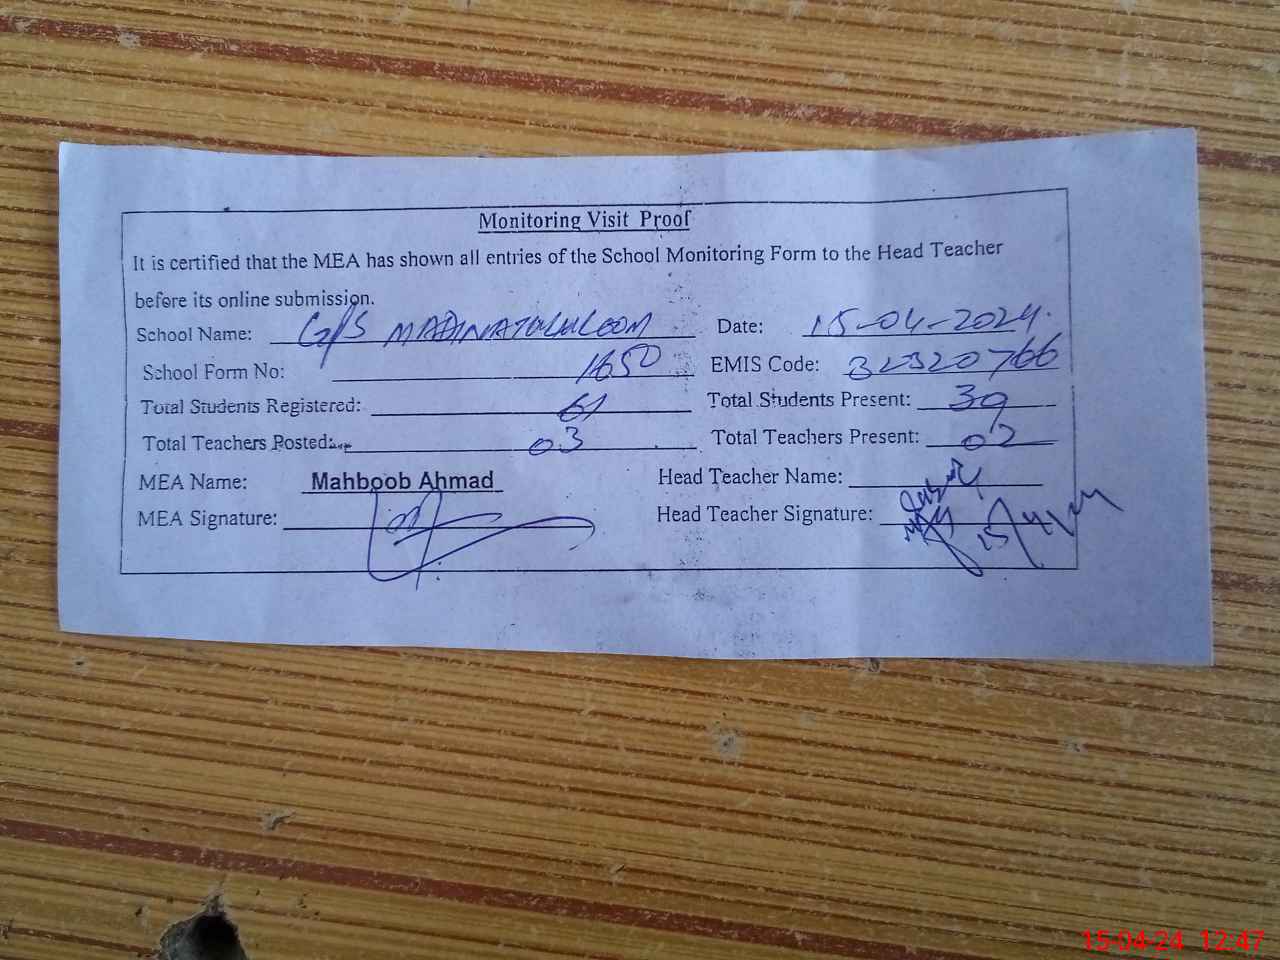 Monitoring Visit Proof
It is certified that the MEA has shown all entries of the School Monitoring Form to the Head Teacher
before its online submission.
School Name: G/S MADINATULULOOM Date: 15-04-2024.
School Form No: 1650 EMIS Code: 32320766
Total Students Registered: 61 Total Students Present: 39
Total Teachers Posted: 03 Total Teachers Present: 02
MEA Name: Mahboob Ahmad Head Teacher Name:
MEA Signature: Head Teacher Signature:
15-04-24 12:47